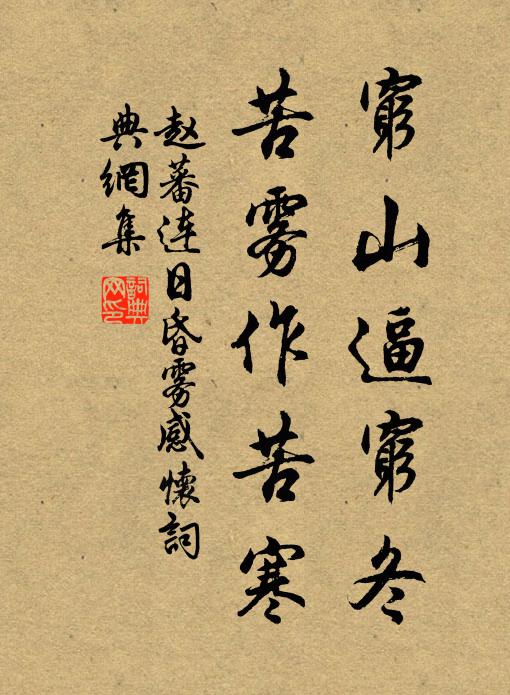 窮山逼窮冬
苦雾作苦寒
赵蕃连日昏雾感懷詞
典網集
詞典网印